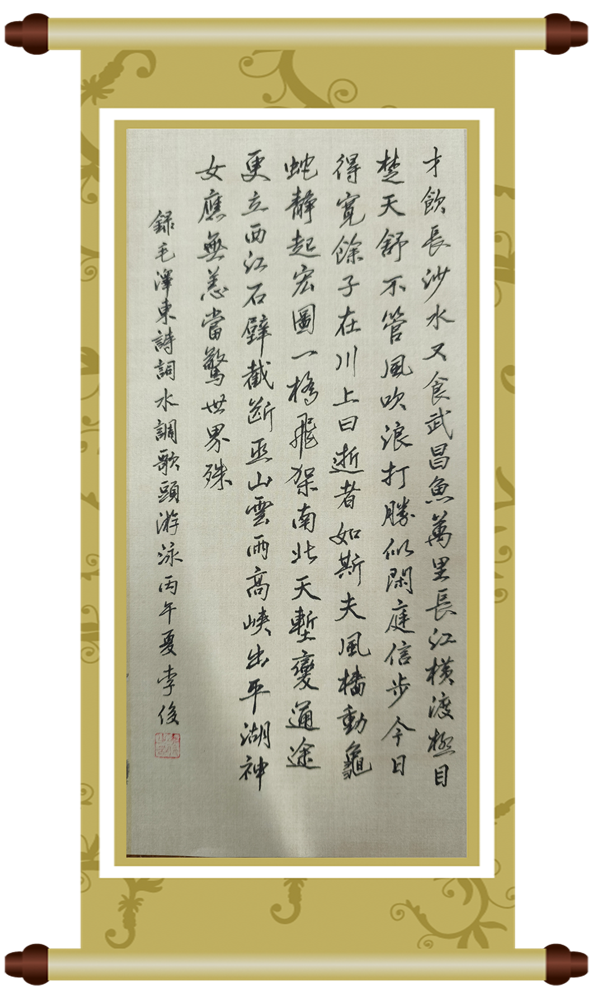 才飲長沙水又食武昌魚萬里長江橫渡極目
楚天舒不管風吹浪打勝似閑庭信步今日
得寬餘子在川上曰逝者如斯夫風檣動龜
蛇靜起宏圖一橋飛架南北天塹變通途
更立西江石壁截斷巫山雲雨高峽出平湖神
女應無恙當驚世界殊
錄毛澤東詩詞水調歌頭游泳丙午夏李俊